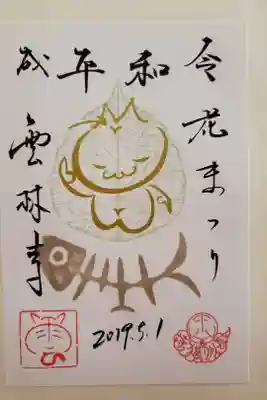 令和平成
花まつり
雲林寺
2019.5.1